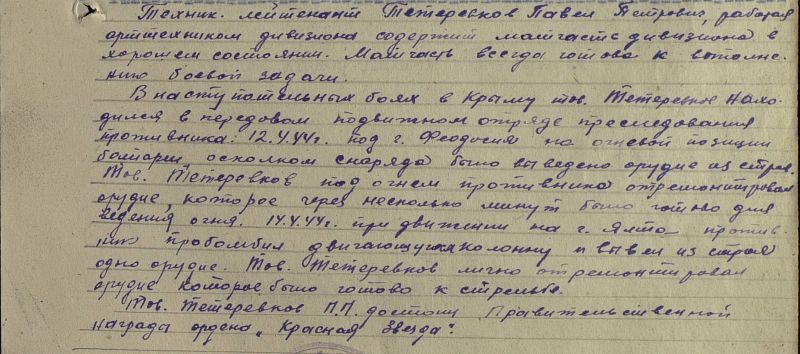 Техник. лейтенант Тетеревков Павел Петрович, работая
арттехником дивизиона содержит матчасть дивизиона в
хорошем состоянии. Матчасть всегда готова к выполне-
нию боевой задачи.
В наступательных боях в Крыму тов. Тетеревков нахо-
дился в передовом подвижном отряде преследования
противника. 12.4.44г. под г. Феодосия на огневой позиции
батареи осколком снаряда было выведено орудие из строя.
Тов. Тетеревков под огнем противника отремонтировал
орудие, которое через несколько минут было готово для
ведения огня. 14.4.44г. при движении на г. Ялта против-
ник пробомбил двигающуюся колонну и вывел из строя
одно орудие. Тов. Тетеревков лично отремонтировал
орудие которое было готово к стрельбе.
Тов. Тетеревков П.П. достоин Правительственной
награды ордена „Красная Звезда".